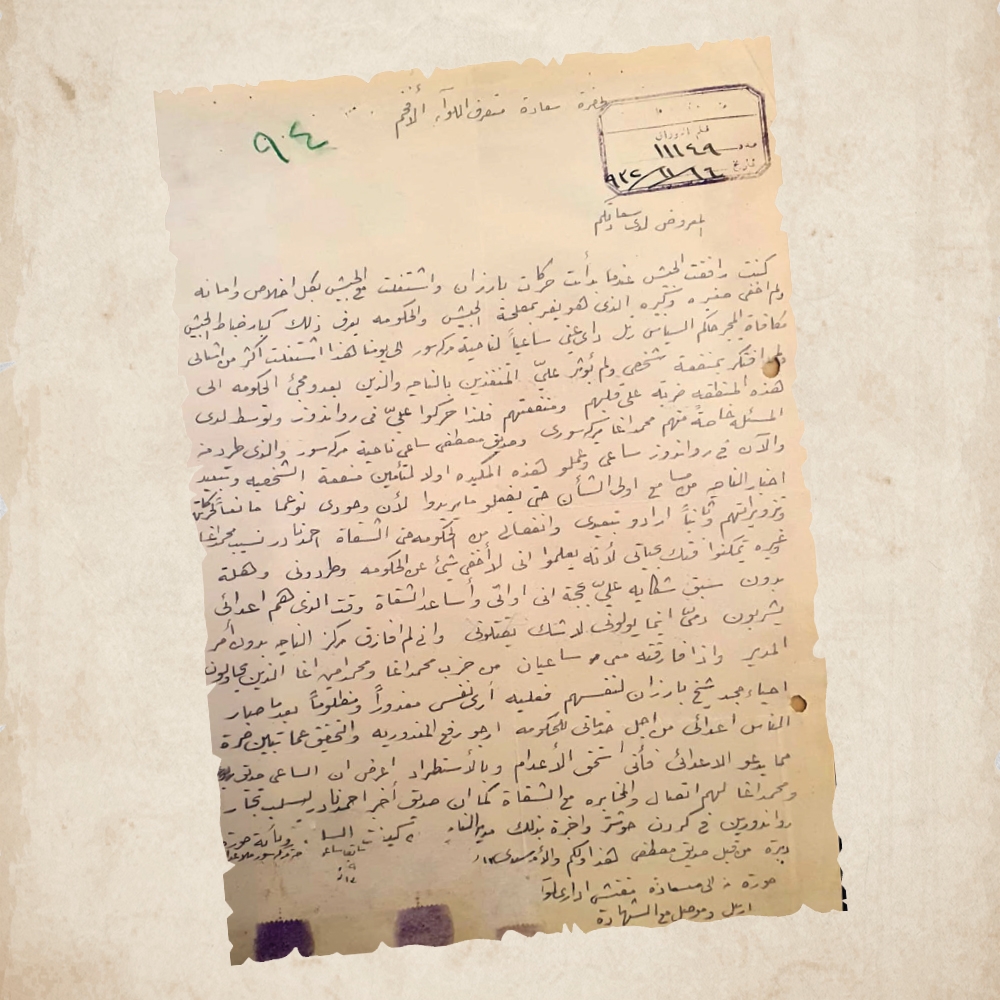 لحضرة سعادة متصرف اللواء الأفخم
٩٤
قلم اوراق
عدد ١١١٤٩
تاريخ ١٦/١١/٩٣٢
المعروض لدى سعادتكم
كنت رافقت الجيش عندما بدأت حركات بارزان واشتغلت مع الجيش بكل اخلاص وامانه
ولم اخفي صغيره وكبيره الذى هو يفر بمصلحة الجيش والحكومه يعرف ذلك كبار ضباط الجيش
مكافاة الحاكم السياسي ساعياً لناحية مركه سور الى يومنا هذا اشتغلت اكثر من امثالى
ولم افتكر بمنفعة شخصي ولم يؤثر عليّ المتنفذين بالناحيه والذين بعد ومجئ الحكومه الى
هذه المنطقه ضربة على قلبهم ومنفعتهم فلذا حركوا عليّ في رواندوز وتوسط لدى
المسئله خاصة منهم محمد اغا مركه سورى وصديق مصطفى ساعي ناحية مركه سور والذى طرد منه
والآن في رواندوز ساعي وعملو هذه المكيده اولا لتأمين منفعة الشخصيه وتبعيد
اخبار الناحيه مع اولى الشأن حتى يفعلو ما يريدوا لأن وجودى نوعما مانعاً لحركاتهم
وتزويراتهم وثانياً ارادو تبعيدى وانفصالى من الحكومه حتى الشقاة احمد نادر نسيب محمد اغا
وغيره تمكنوا فتك بحياتى لأنه يعلموا انى لا أخفى شئ عن الحكومه وطردونى وهلة
بدون سبق شكايه عليّ بحجة انى اوالى وأساعد الشقاة وقت الذى هم اعدائى
يشربون دمي اينما يولونى لا شك يقتلونى وانى لم افارق مركز الناحيه بدون أمر
المدير واذا فارقته معى ساعيان من حزب محمد اغا ومحمد امين اغا الذين يحاولون
احياء مجد شيخ بارزان لنفسهم فعليه أرى نفسى مغدوراً ومظلوماً بعد ما صار
الناس اعدائى من اجل خدماتى للحكومه ارجو رفع المغدوريه والتحقق عما تبين ضرة
مما يدعو الاعدائى فأنى أستحق الأعدام وبالأستطراد اعرض ان الساعي صديق
ومحمد اغا لهم اتصال والمخابره مع الشقاة كما ان صديق أخبر احمد نادر ليسلب تجار
رواندوزيين في كردن واخرة بذلك مدير الناحيه
من قبل صديق مصطفى هذا ولكم والأمر سيدى
صورة منه الى سعادة مفتش ادارى لوآ
اربيل وموصل مع الشهادة